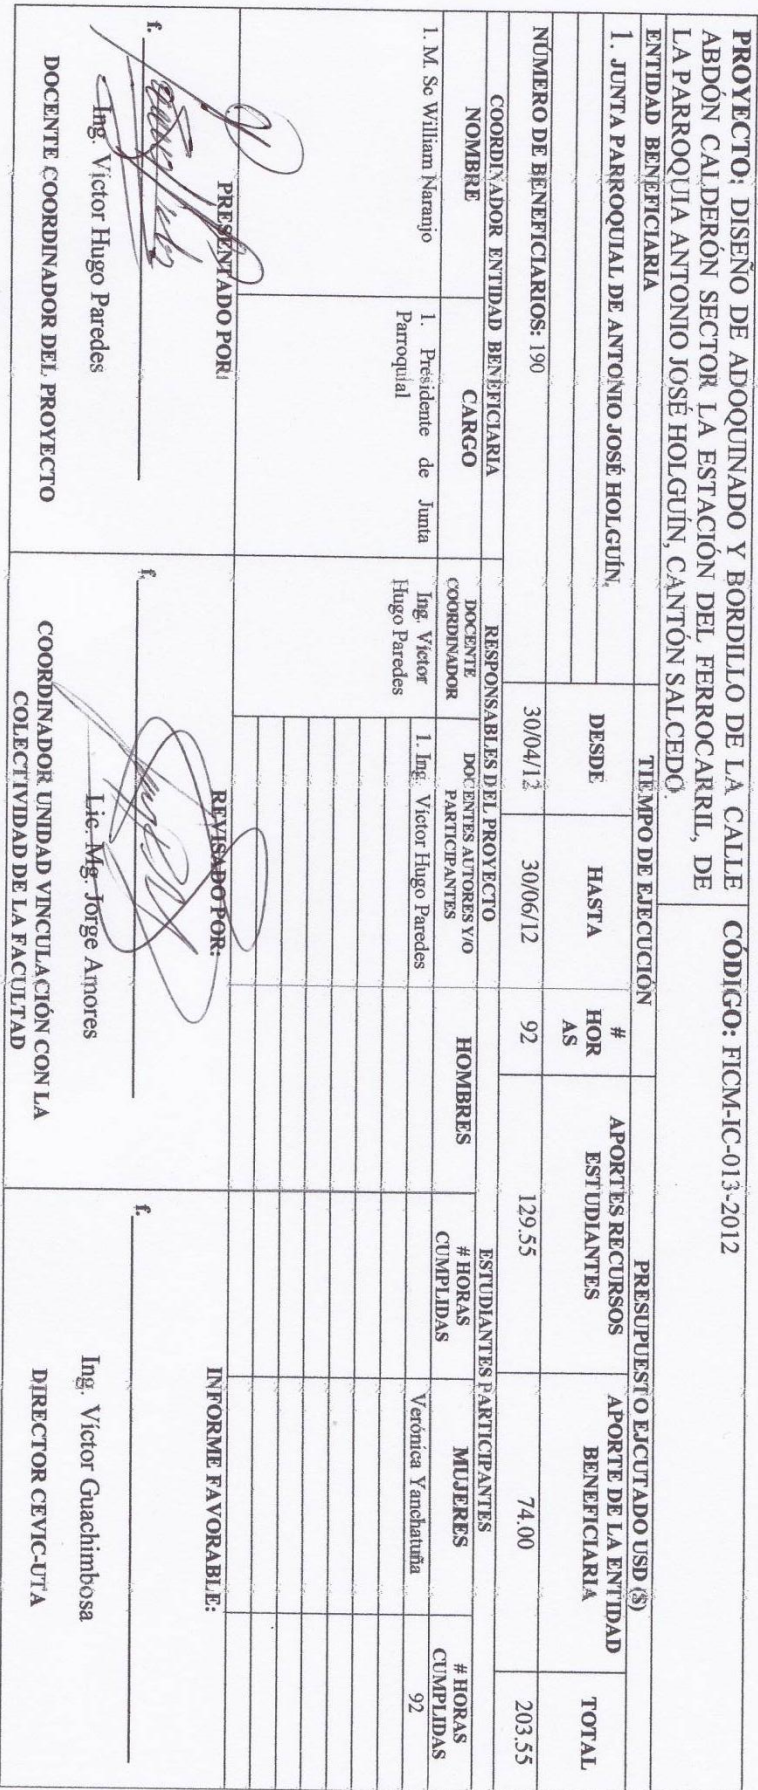 PROYECTO: DISEÑO DE ADOQUINADO Y BORDILLO DE LA CALLE
ABDÓN CALDERÓN SECTOR LA ESTACIÓN DEL FERROCARRIL, DE
LA PARROQUIA ANTONIO JOSÉ HOLGUÍN, CANTÓN SALCEDO.
CÓDIGO: FICM-IC-013-2012
ENTIDAD BENEFICIARIA
TIEMPO DE EJECUCIÓN
PRESUPUESTO EJCUTADO USD ($)
1. JUNTA PARROQUIAL DE ANTONIO JOSÉ HOLGUÍN.
DESDE
HASTA
#
HOR
AS
APORTES RECURSOS
ESTUDIANTES
APORTE DE LA ENTIDAD
BENEFICIARIA
TOTAL
NÚMERO DE BENEFICIARIOS: 190
30/04/12
30/06/12
92
129.55
74.00
203.55
COORDINADOR ENTIDAD BENEFICIARIA
RESPONSABLES DEL PROYECTO
ESTUDIANTES PARTICIPANTES
NOMBRE
CARGO
DOCENTE
COORDINADOR
DOCENTES AUTORES Y/O
PARTICIPANTES
HOMBRES
# HORAS
CUMPLIDAS
MUJERES
# HORAS
CUMPLIDAS
1. M. Sc William Naranjo
1. Presidente de Junta
Parroquial
Ing. Víctor
Hugo Paredes
1. Ing. Víctor Hugo Paredes
Verónica Yanchatuña
92
PRESENTADO POR:
REVISADO POR:
INFORME FAVORABLE:
f.
f.
f.
Ing. Víctor Hugo Paredes
Lic. Mg. Jorge Amores
Ing. Víctor Guachimbosa
DOCENTE COORDINADOR DEL PROYECTO
COORDINADOR UNIDAD VINCULACIÓN CON LA
COLECTIVIDAD DE LA FACULTAD
DIRECTOR CEVIC-UTA